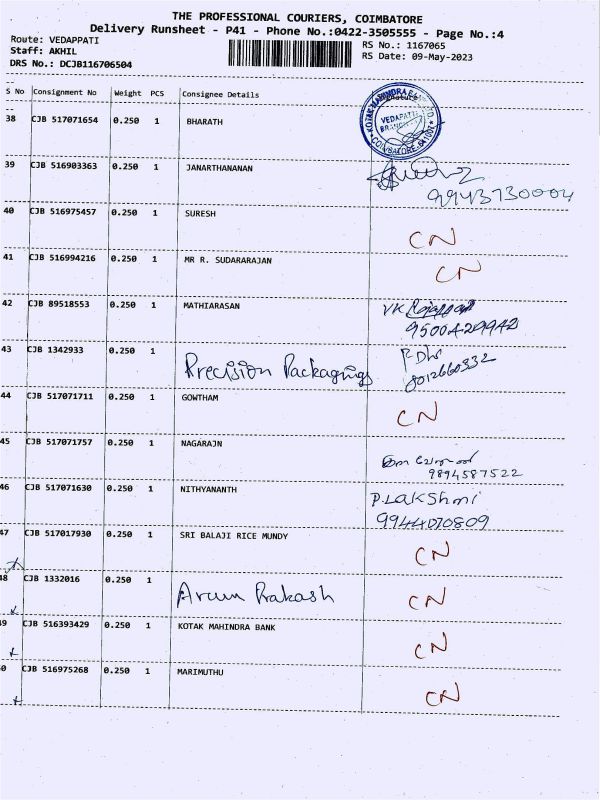 THE PROFESSIONAL COURIERS, COIMBATORE
Delivery Runsheet - P41 - Phone No.:0422-3505555 - Page No.:4
Route: VEDAPPATI
RS No.: 1167065
Staff: AKHIL
RS Date: 09-May-2023
DRS No.: DCJB116706504
S No Consignment No Weight PCS Consignee Details
38 CJB 517071654 0.250 1 BHARATH
KOTAK MAHINDRA BANK
VEDAPATTI
BRANCH
COIMBATORE-641007
39 CJB 516903363 0.250 1 JANARTHANANAN
9943730004
40 CJB 516975457 0.250 1 SURESH CN
41 CJB 516994216 0.250 1 MR R. SUDARARAJAN CN
42 CJB 89518553 0.250 1 MATHIARASAN VK
9500429942
43 CJB 1342933 0.250 1 Precision Packagings
8012660332
44 CJB 517071711 0.250 1 GOWTHAM CN
45 CJB 517071757 0.250 1 NAGARAJN
9894587522
46 CJB 517071630 0.250 1 NITHYANANTH P.LAKShmi
9944070809
47 CJB 517017930 0.250 1 SRI BALAJI RICE MUNDY CN
48 CJB 1332016 0.250 1 Arun Prakash CN
49 CJB 516393429 0.250 1 KOTAK MAHINDRA BANK CN
0 CJB 516975268 0.250 1 MARIMUTHU CN